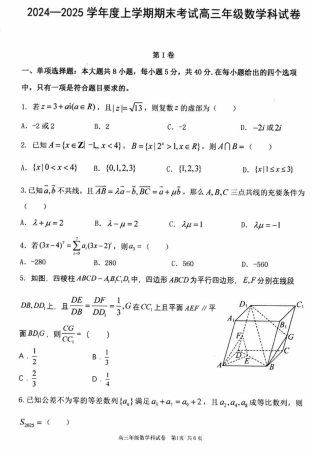 2024—2025 学年度上学期期末考试高三年级数学科试卷
第 Ⅰ 卷
一、单项选择题：本大题共 8 小题，每小题 5 分，共 40 分.在每小题给出的四个选项
中，只有一项是符合题目要求的。
1. 若 z=3+ai(a∈R)，且|z|=√13，则复数 z 的虚部为（ ）
A. -2 或 2 B. 2 C. -2 D. -2i 或 2i
2. 已知 A={x∈Z| -1, x<4}，B={x|2^x>1,x∈R}，则 A∩B=（ ）
A. {x|0<x<4} B. {0,1,2,3} C. {1,2,3} D. {x|1≤x≤3}
3.已知 a⃗,b⃗ 不共线，且 AB⃗=λa⃗-b⃗,BC⃗=a⃗+μb⃗，那么 A,B,C 三点共线的充要条件为
（ ）
A. λ+μ=2 B. λ-μ=2 C. λμ=1 D. λμ=-1
4. 若(3x-4)^7=∑a_i(3x-2)^i，则 a_3=（ ）
A. -280 B. 280 C. 560 D. -560
5. 如图，四棱柱 ABCD-A₁B₁C₁D₁中，四边形 ABCD 为平行四边形，E,F 分别在线段
DB,DD₁上，且 DE/DB=DF/DD₁=1/3,G 在 CC₁上且平面 AEF // 平
面 BD₁G，则 CG/CC₁=（ ）
A. 1/2 B. 1/3
C. 2/3 D. 1/4
D₁
C₁
A₁
B₁
G
F
D
C
E
A
B
6. 已知公差不为零的等差数列{a_n}满足 a_3+a_7=a_9+2，且 a_2,a_4,a_8 成等比数列，则
S_2025=（ ）
高三年级数学科试卷 第1页 共6页